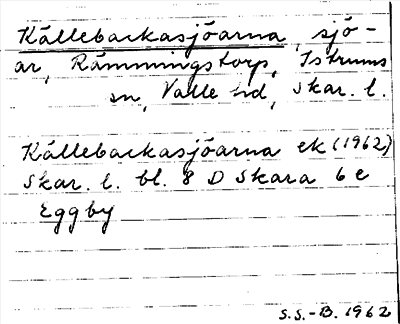 Källebackasjöarna, sjö-
ar, Rämmningstorp, Istrums
sn, Valle hd, Skar. l.
Källebackasjöarna ek (1962)
Skar. l. bl. 8 D Skara 6 e
Eggby
S.S.-B. 1962